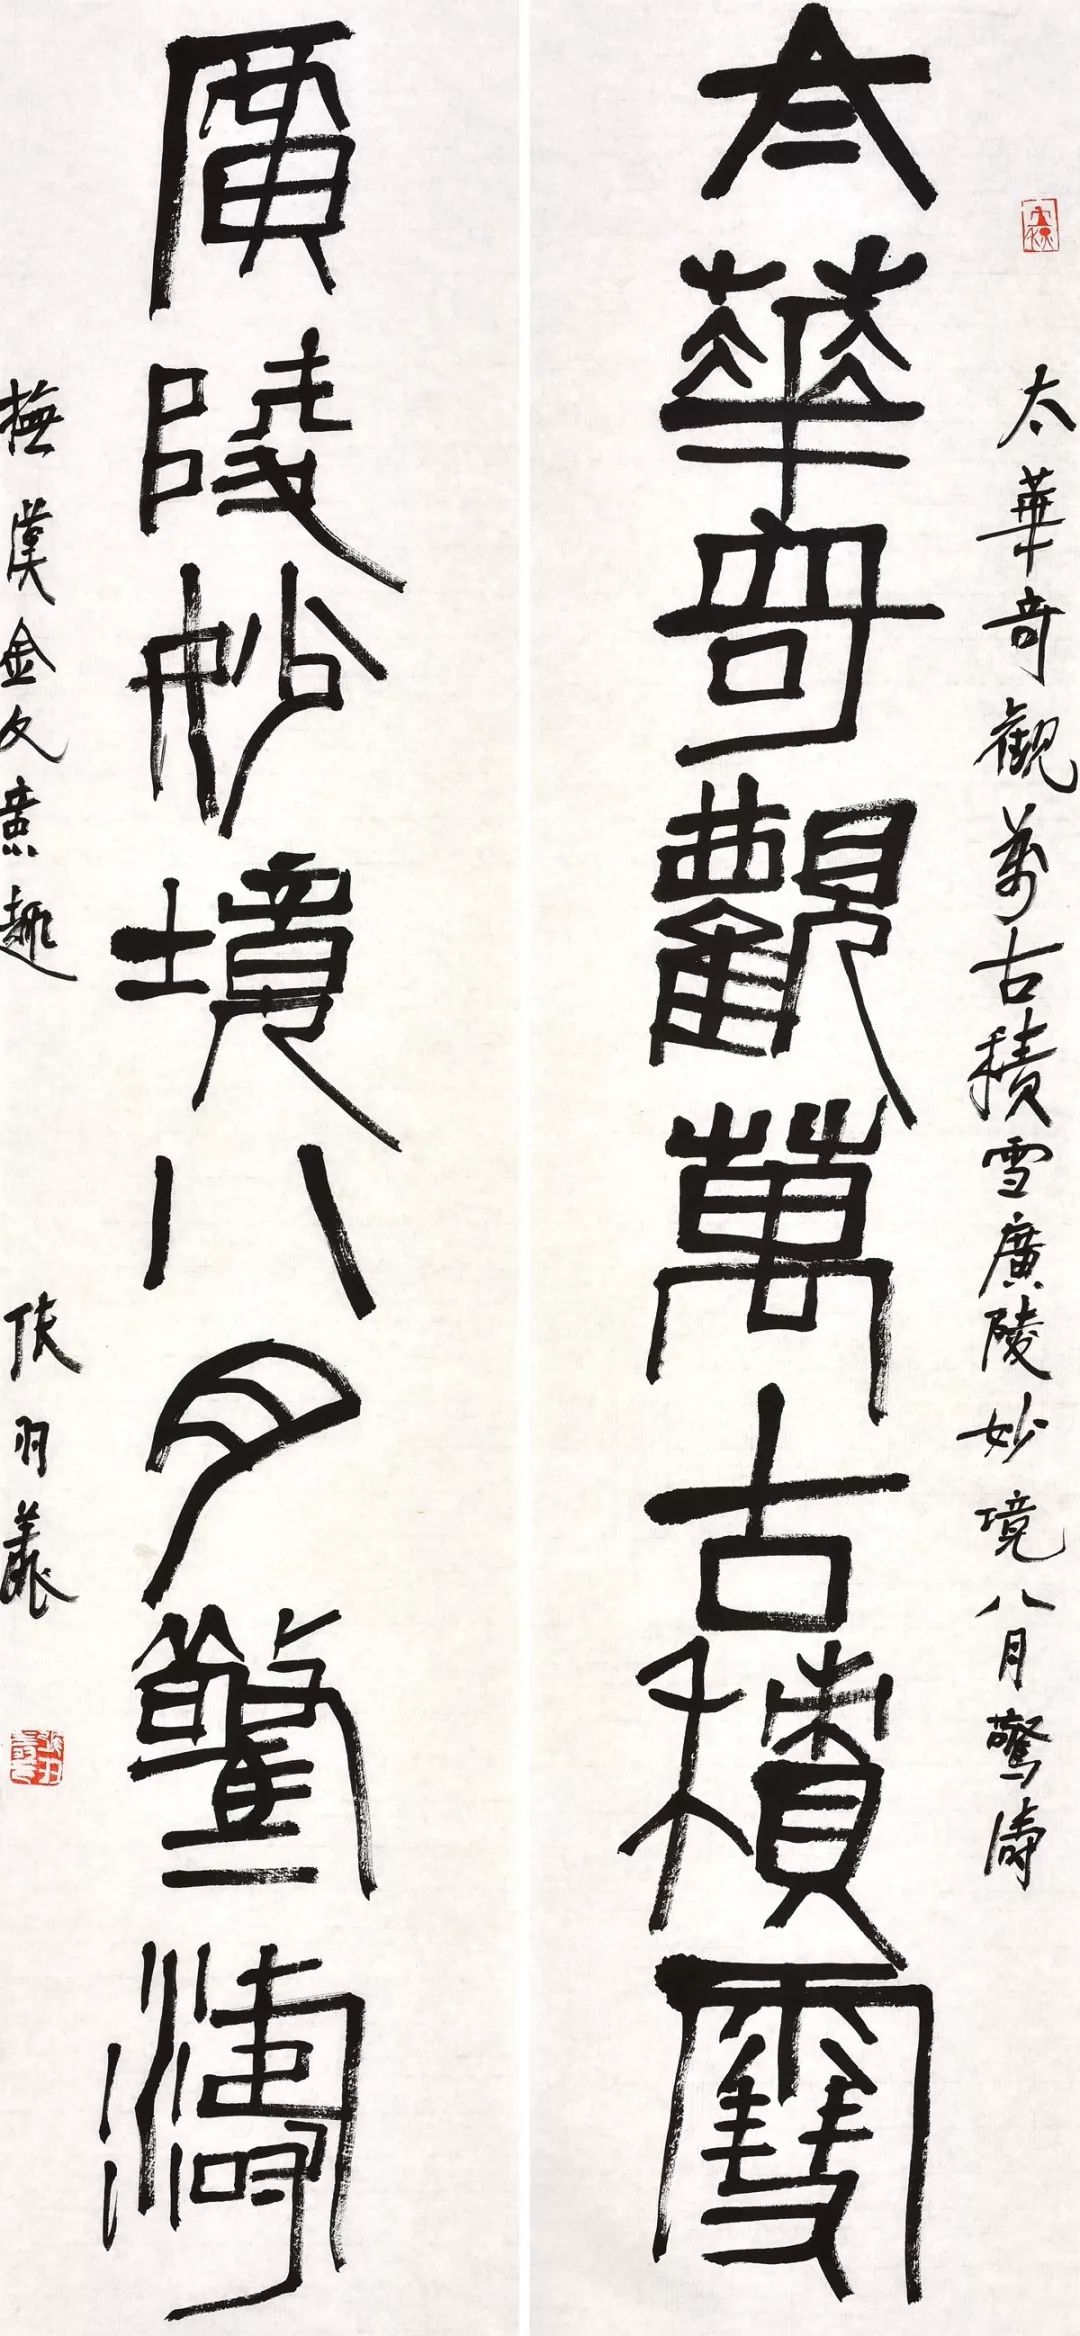 太華奇觀萬古積雪廣陵妙境八月驚濤
太華奇觀萬古積雪
廣陵妙境八月驚濤
橅漢金文意趣
張羽